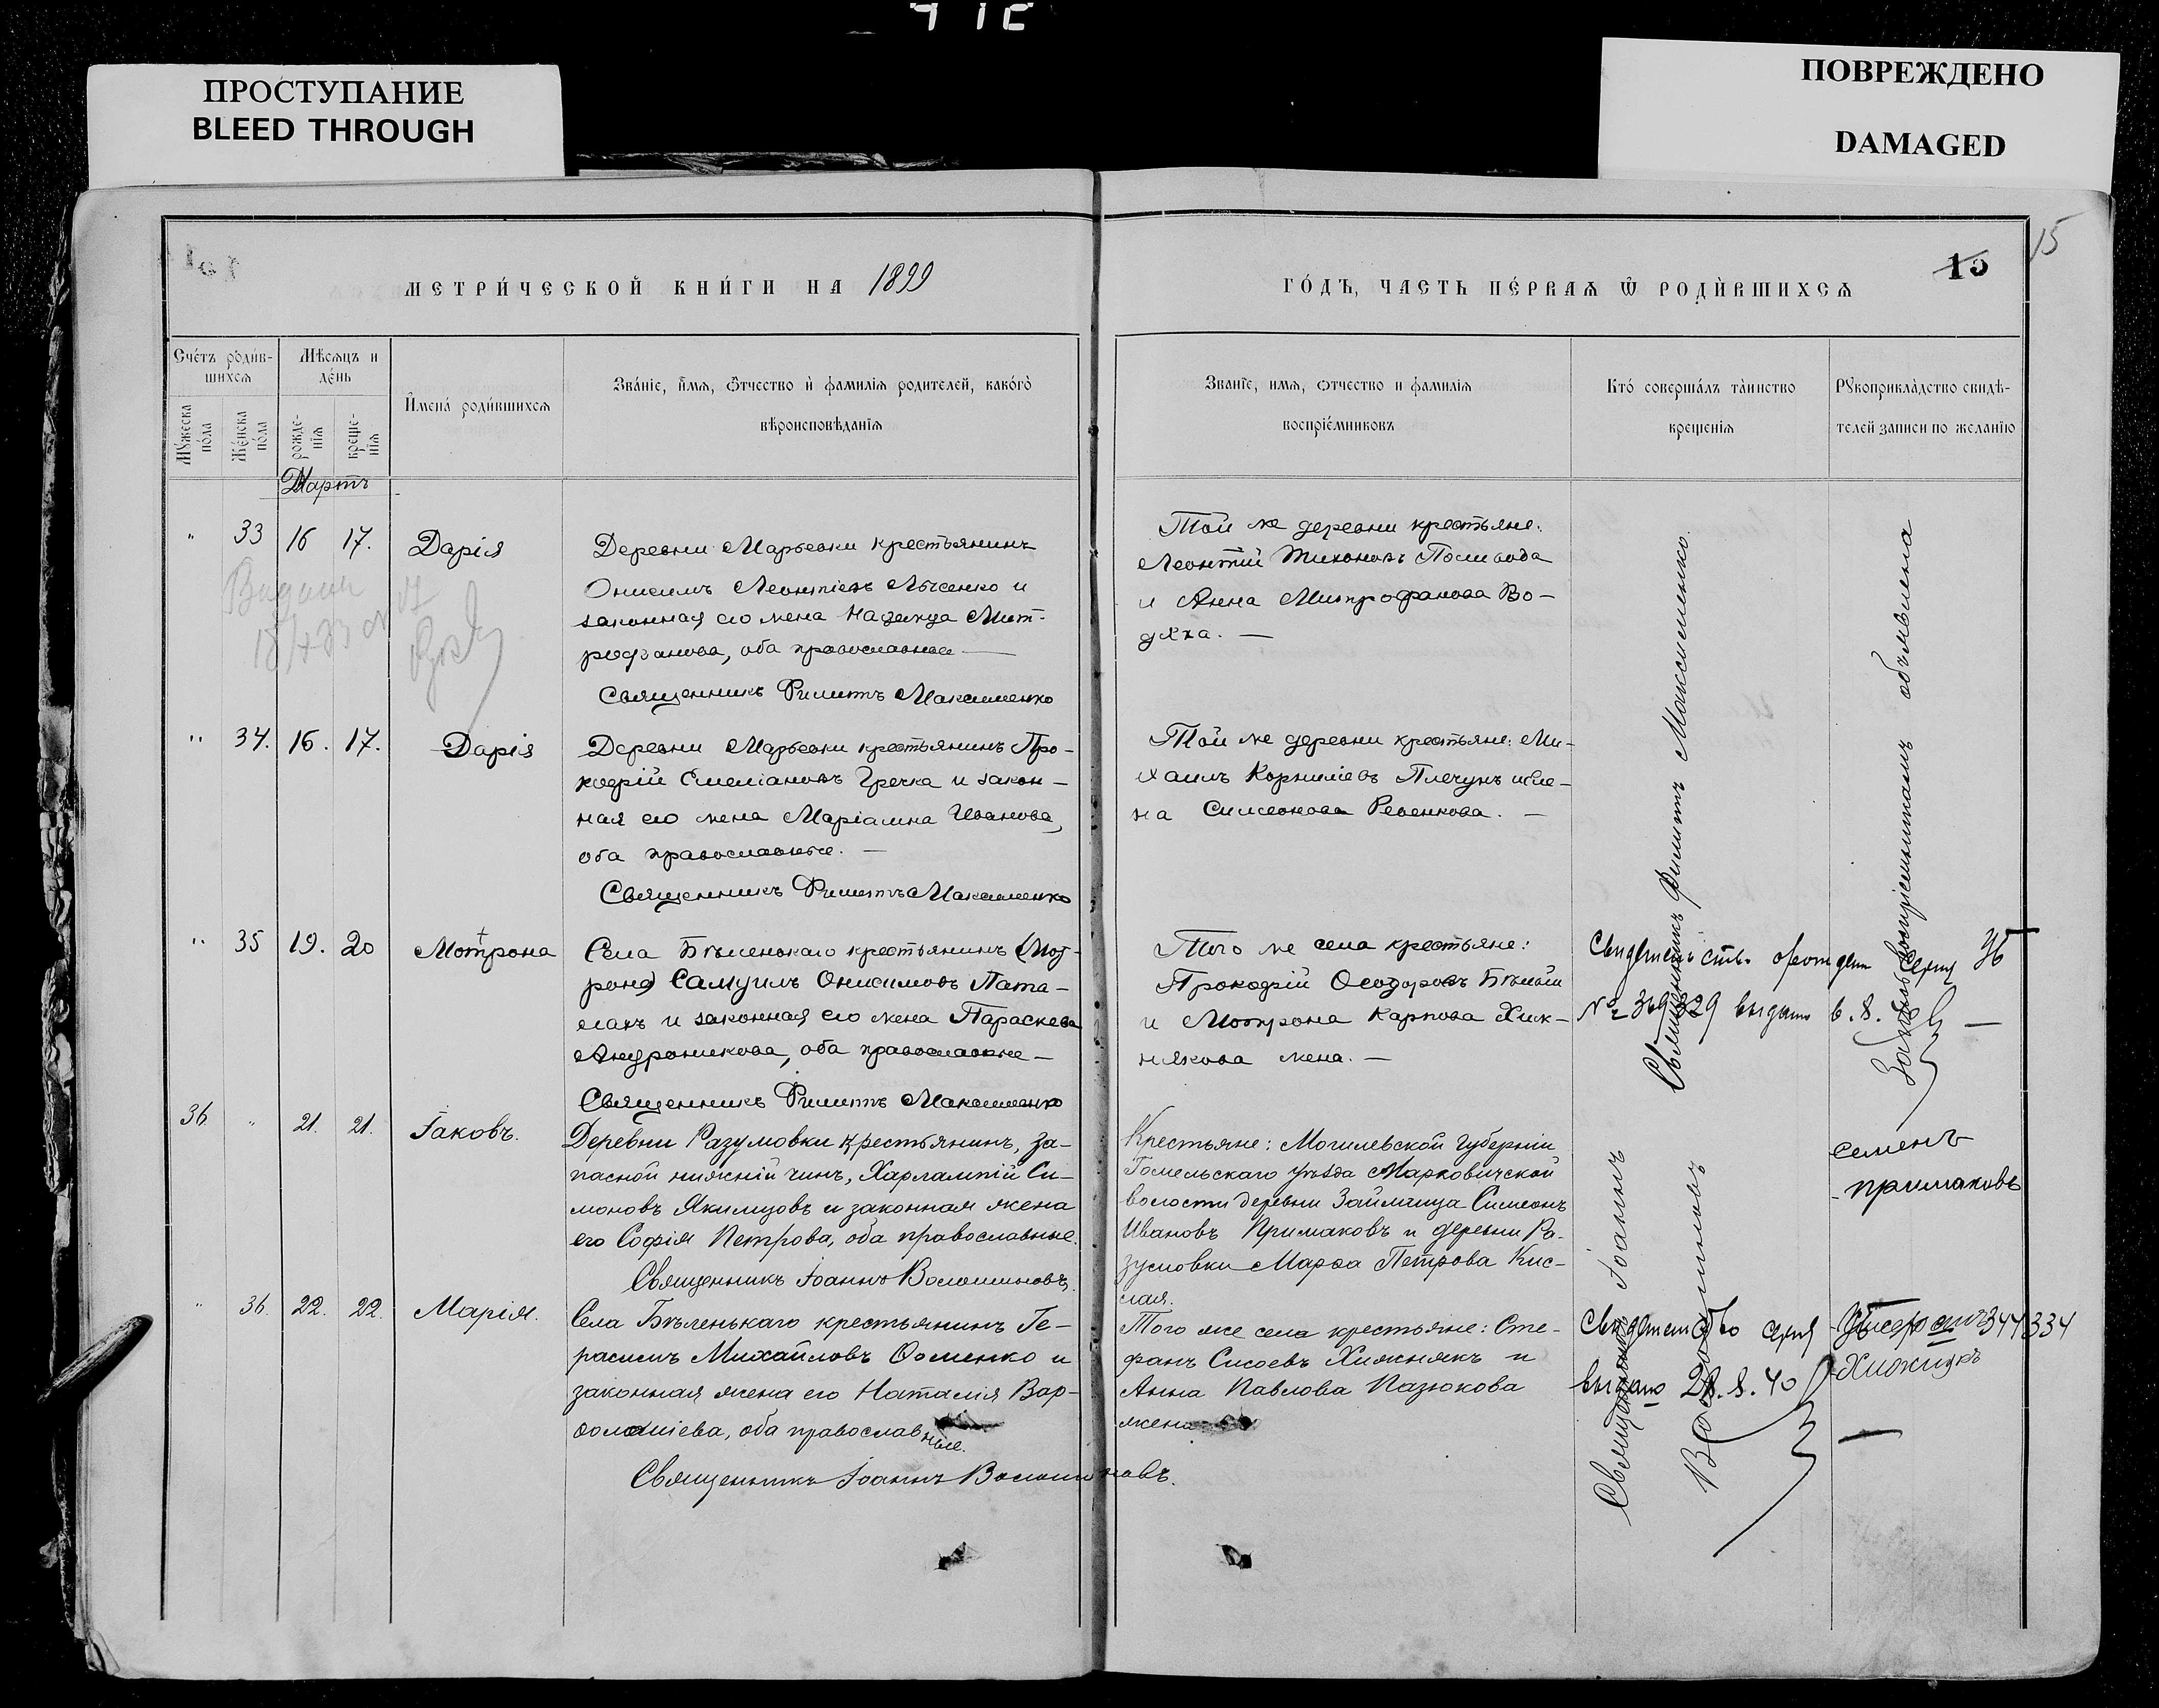 ПРОСТУПАНИЕ
BLEED THROUGH
ПОВРЕЖДЕНО
DAMAGED
МЕТРИ́ЧЕСКОЙ КНИ́ГИ НА 1899
ГО́ДЪ, ЧАСТЬ ПЕ́РВАѦ Ѿ РОДИ́ВШИХСѦ
15
15
Сче́тъ роди́в-
шихсѧ
Мѣсѧцъ и
де́нь
Мꙋ́жеска
по́ла
Же́нска
по́ла
рожде-
нїѧ
креще-
нїѧ
И҆мена́ роди́вшихсѧ
Зва́нїе, и҆́мѧ, ѻ҆́тчество и҆ фамилїѧ родителей, како́гѡ
вѣроисповѣданїѧ
Званїе, имѧ, ѻтчество и фамилїѧ
воспрїе́мниковъ
Кто́ соверша́лъ та́инство
крещенїѧ
Рꙋкоприкла́дство свидѣ-
телей записи по желанїю
Мартъ
" 33 16 17. Дарія
Деревни Марьевки крестьянинъ
Онисимъ Леонтіевъ Лысенко и
законная его жена Надежда Мит-
рофанова, оба православные —
Священникъ Филиппъ Максименко
Той же деревни крестьяне:
Леонтій Тихоновъ Поливода
и Анна Митрофанова Во-
дяха. —
" 34. 16. 17. Дарія
Деревни Марьевки крестьянинъ Про-
кофій Емеліановъ Гречка и закон-
ная его жена Маріамна Иванова,
оба православные. —
Священникъ Филиппъ Максименко
Той же деревни крестьяне: Ми-
хаилъ Корниліевъ Плечунъ и Еле-
на Симеонова Ревенкова. —
" 35 19. 20 Мотрона
Села Бѣленькаго крестьянинъ (Мот-
рона) Самуилъ Онисимовъ Пата-
лахъ и законная его жена Параскева
Андроникова, оба православные —
Священникъ Филиппъ Максименко
Того же села крестьяне:
Прокофій Ѳеодоровъ Бѣлый
и Мотрона Карпова Хиж-
някова жена. —
Священникъ Филиппъ Максименко.
№ 369329 выдано в. 8.
36. " 21. 21. Іаковъ.
Деревни Разумовки крестьянинъ, за-
пасной нижній чинъ, Харлампій Си-
моновъ Якимцовъ и законная жена
его Софія Петрова, оба православные.
Священникъ Іоаннъ Волошиновъ.
Крестьяне: Могилевской губерніи
Гомельскаго уѣзда Марковичской
волости деревни Займища Симеонъ
Ивановъ Примаковъ и деревни Ра-
зумовки Марѳа Петрова Кис-
лая.
Семенъ
Примаковъ
" 36. 22. 22. Марія.
Села Бѣленькаго крестьянинъ Ге-
расимъ Михайловъ Ѳоменко и
законная жена его Наталія Вар-
ѳоломіева, оба православные.
Священникъ Іоаннъ Волошиновъ.
Того же села крестьяне: Сте-
фанъ Сисоевъ Хижнякъ и
Анна Павлова Пазюкова
жена
Священникъ Іоаннъ
Волошиновъ
Свидетельство серия
344334
выдано 28.8.40
Хижнякъ